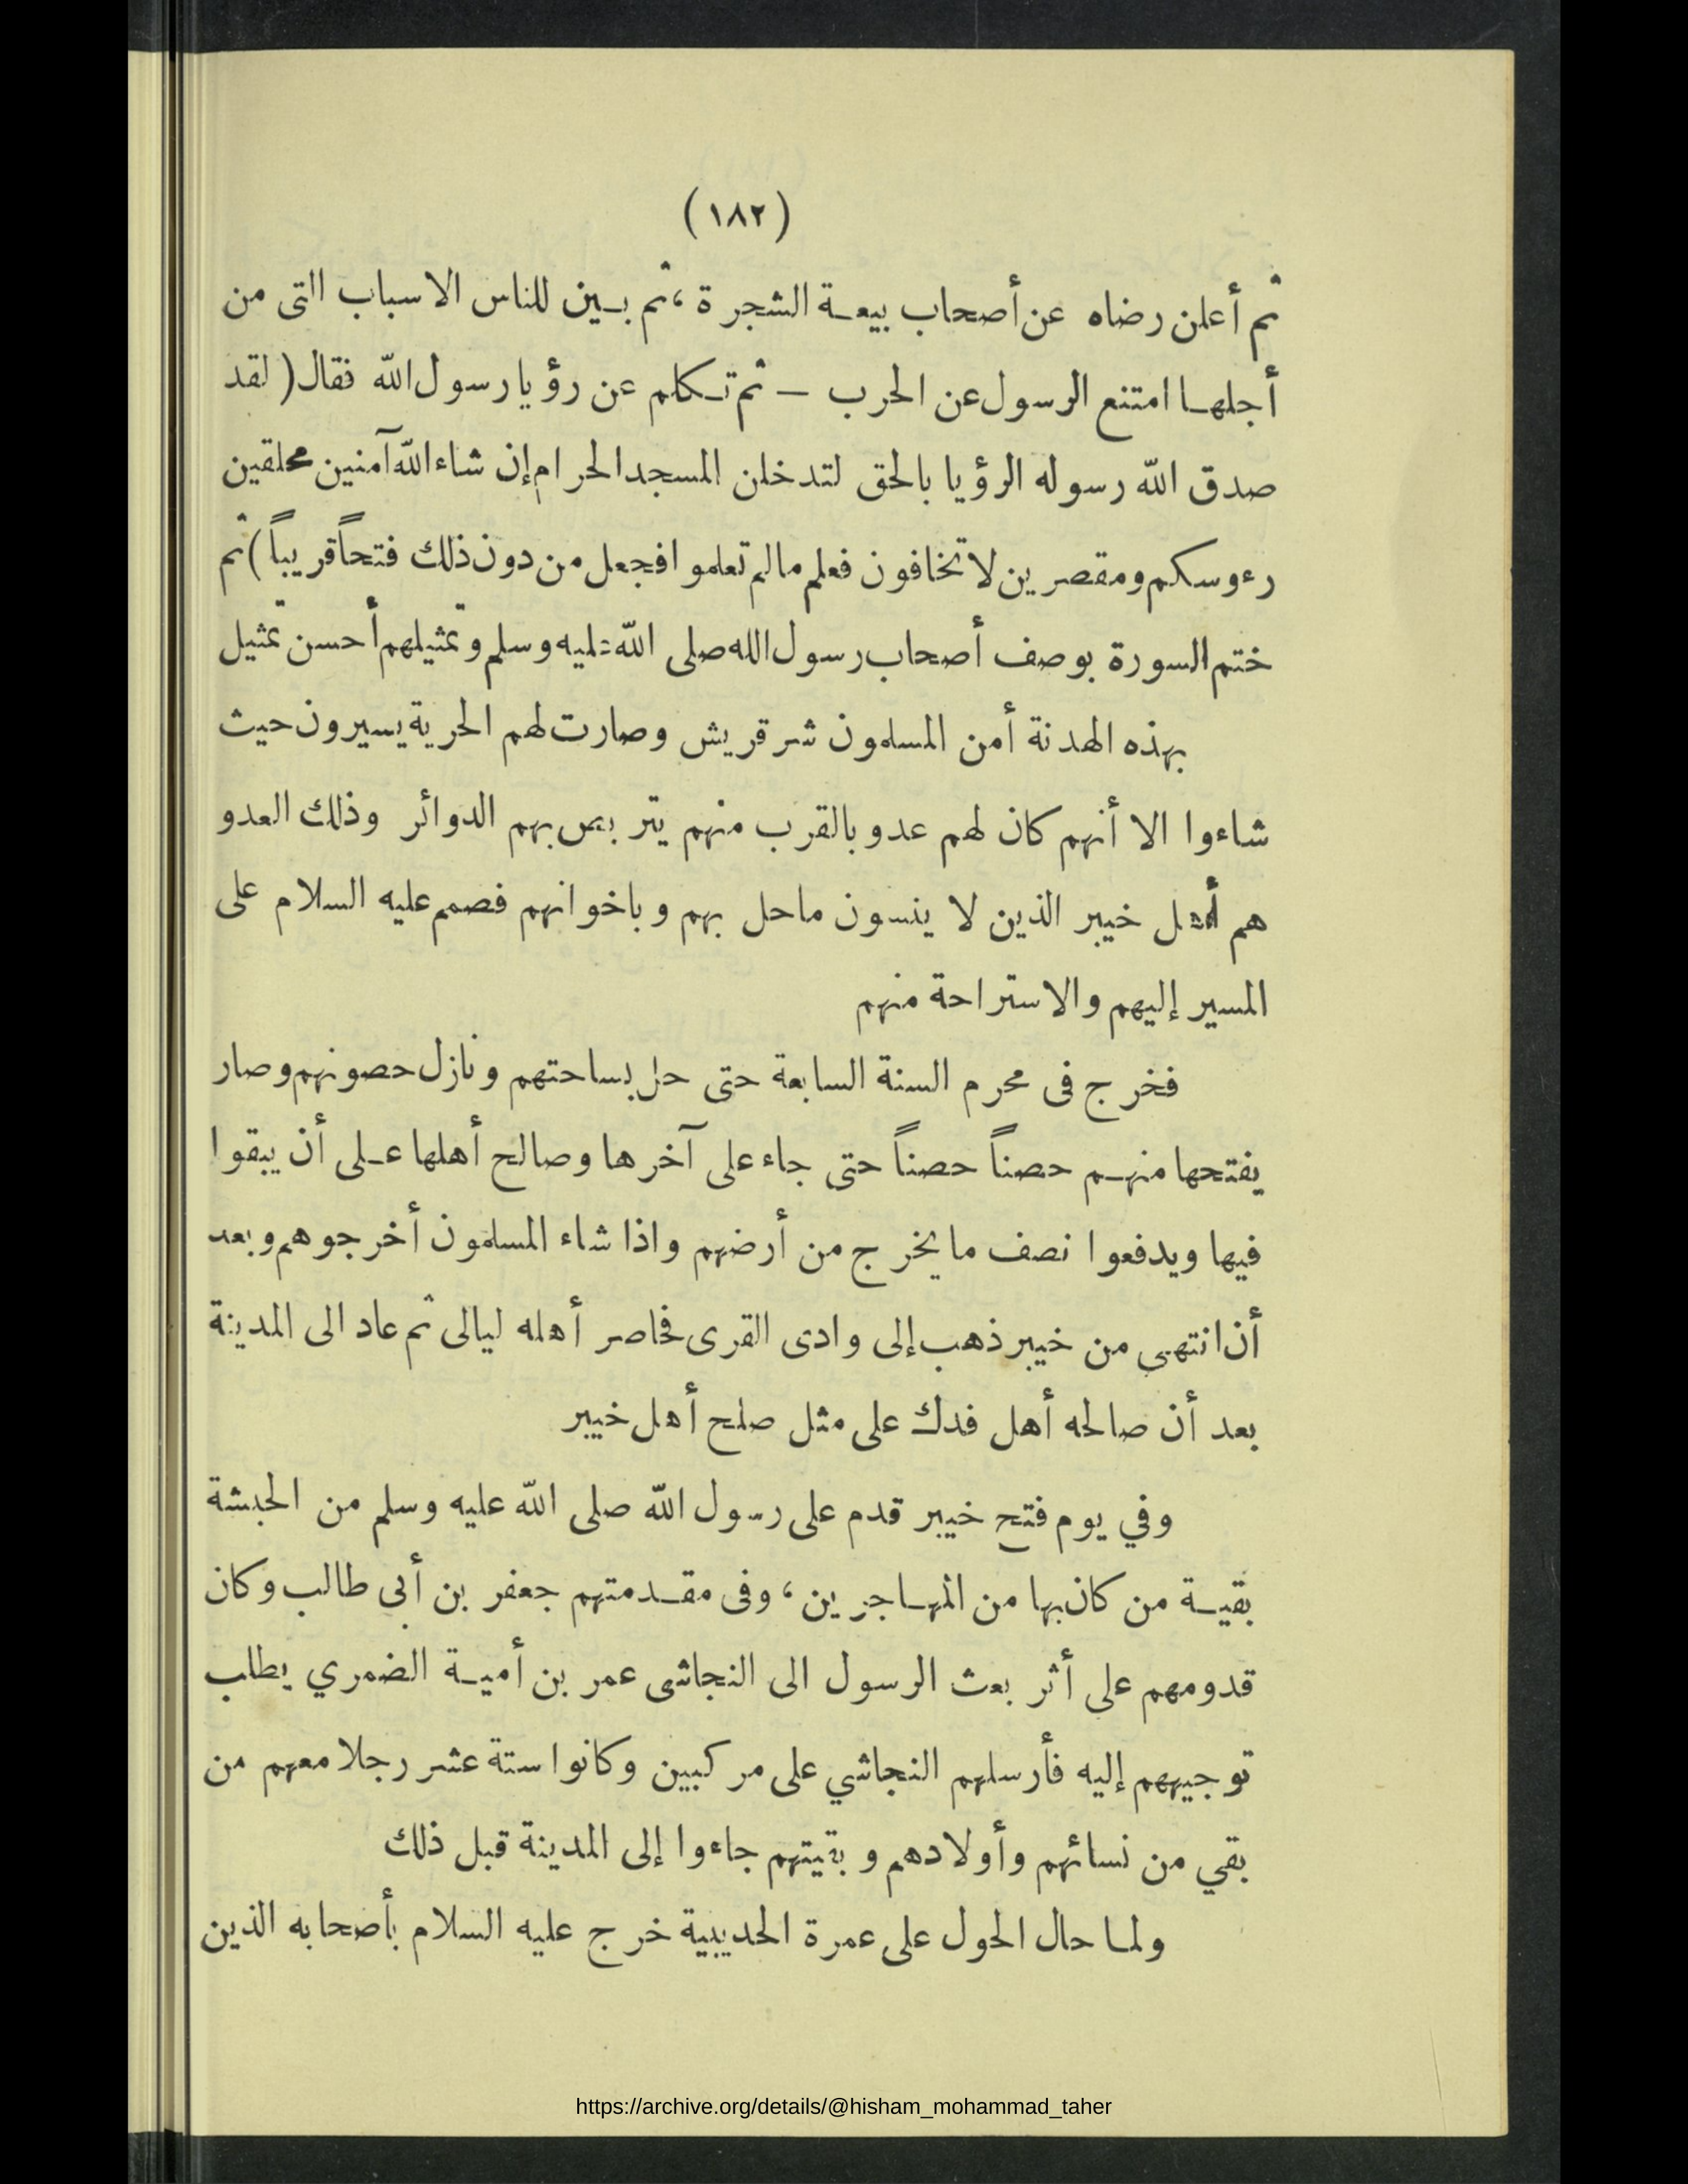 (١٨٢)
ثم أعلن رضاه عن أصحاب بيعة الشجرة ، ثم بين للناس الاسباب التى من
أجلها امتنع الرسول عن الحرب — ثم تكلم عن رؤيا رسول الله فقال ( لقد
صدق الله رسوله الرؤيا بالحق لتدخلن المسجد الحرام إن شاء الله آمنين محلقين
رءوسكم ومقصرين لا تخافون فعلم مالم تعلموا فجعل من دون ذلك فتحاً قريباً ) ثم
ختم السورة بوصف أصحاب رسول الله صلى الله عليه وسلم وتمثيلهم أحسن تمثيل
بهذه الهدنة أمن المسلمون شر قريش وصارت لهم الحرية يسيرون حيث
شاءوا الا أنهم كان لهم عدو بالقرب منهم يتربص بهم الدوائر وذلك العدو
هم أهل خيبر الذين لا ينسون ماحل بهم وباخوانهم فصمم عليه السلام على
المسير إليهم والاستراحة منهم
فخرج فى محرم السنة السابعة حتى حل بساحتهم ونازل حصونهم وصار
يفتحها منهم حصناً حصناً حتى جاء على آخرها وصالح أهلها على أن يبقوا
فيها ويدفعوا نصف مايخرج من أرضهم واذا شاء المسلمون أخرجوهم وبعد
أن انتهى من خيبر ذهب إلى وادى القرى فحاصر أهله ليالى ثم عاد الى المدينة
بعد أن صالحه أهل فدك على مثل صلح أهل خيبر
وفي يوم فتح خيبر قدم على رسول الله صلى الله عليه وسلم من الحبشة
بقية من كان بها من المهاجرين ، وفى مقدمتهم جعفر بن أبى طالب وكان
قدومهم على أثر بعث الرسول الى النجاشى عمر بن أمية الضمري يطلب
توجيههم إليه فأرسلهم النجاشي على مركبين وكانوا ستة عشر رجلا معهم من
بقي من نسائهم وأولادهم وبقيتهم جاءوا إلى المدينة قبل ذلك
ولما حال الحول على عمرة الحديبية خرج عليه السلام بأصحابه الذين
https://archive.org/details/@hisham_mohammad_taher